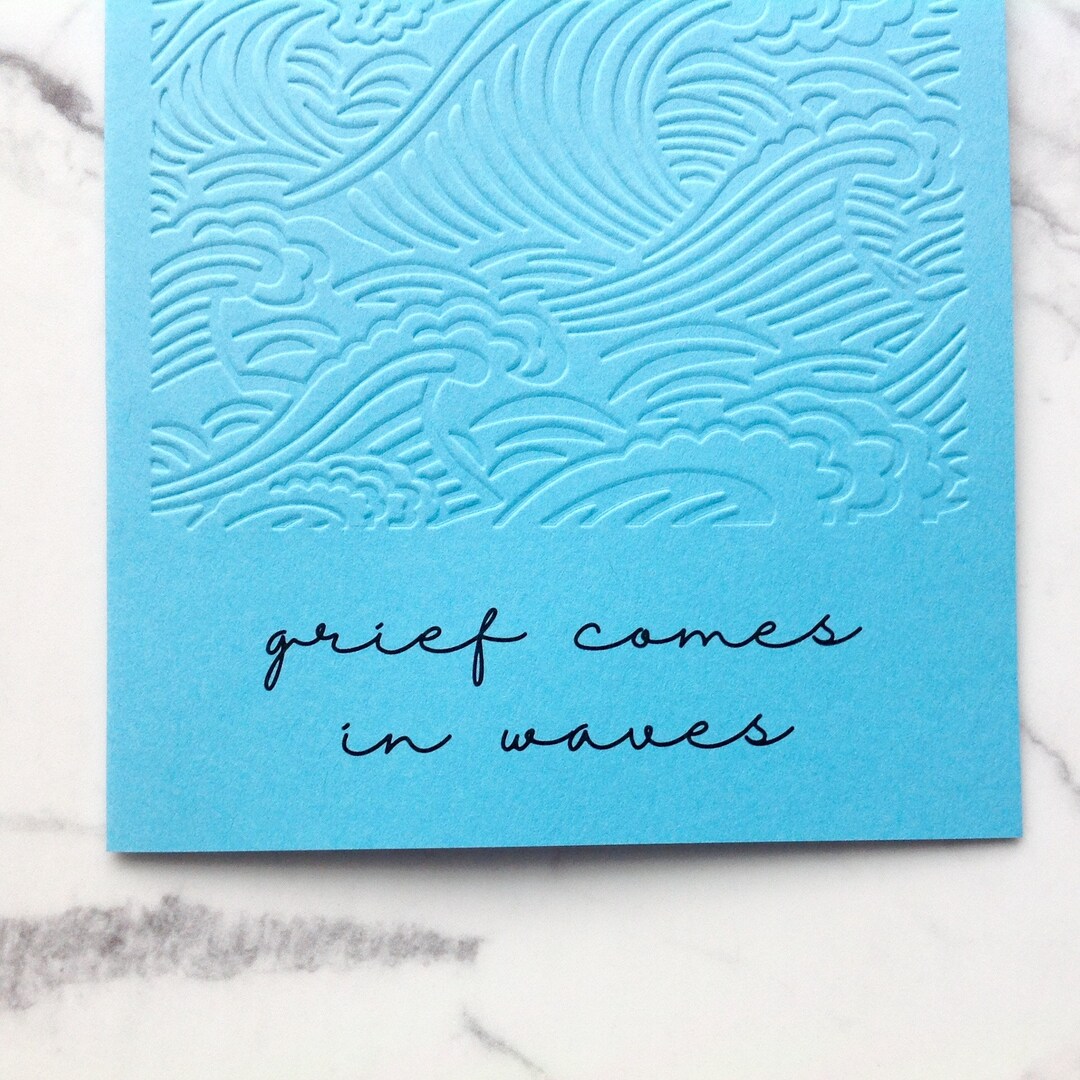 grief comes
in waves